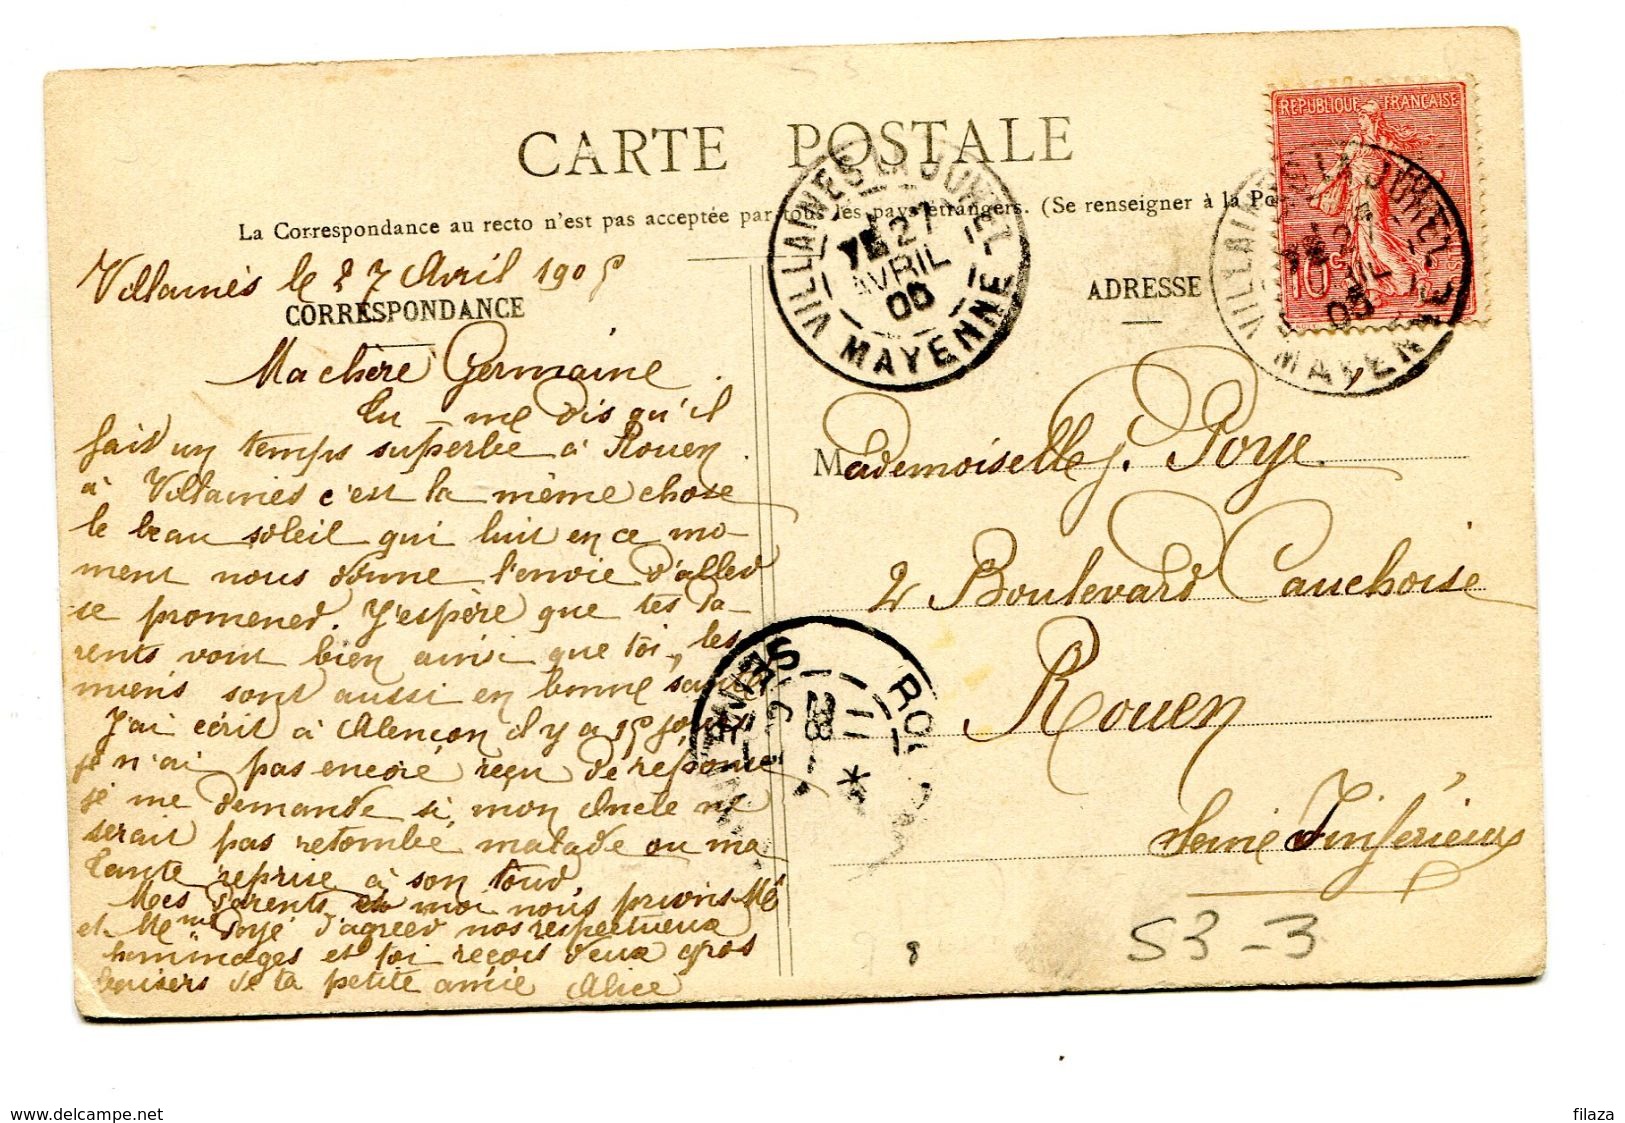 CARTE POSTALE
La Correspondance au recto n'est pas acceptée par tous les pays étrangers. (Se renseigner à la Po
Villaines le 27 Avril 1905
CORRESPONDANCE
Ma chère Germaine.
Tu me dis qu'il
fait un temps superbe à Rouen.
à Villaines c'est la même chose
le beau soleil qui luit en ce mo-
ment nous donne l'envie d'aller
se promener. J'espère que tes pa-
rents vont bien ainsi que toi, les
miens sont aussi en bonne santé
J'ai écrit à Alençon il y a 15 jours
je n'ai pas encore reçu de réponse
je me demande si mon Oncle ne
serait pas retombé malade ou ma
tante reprise à son tour,
Mes Parents et moi nous prions Mr
et Mme Poye d'agréer nos respectueux
hommages et toi reçois deux gros
baisers de ta petite amie Alice
VILLAINES LA JUHEL
27
AVRIL
05
MAYENNE
REPUBLIQUE FRANÇAISE
10c
VILLAINES LA JUHEL
05
MAYENNE
ADRESSE
Mademoiselle G. Poye.
2 Boulevard Cauchoise
Rouen
Seine Inférieure
ROU
SEINE
53-3
8
delcampe.net
filaza